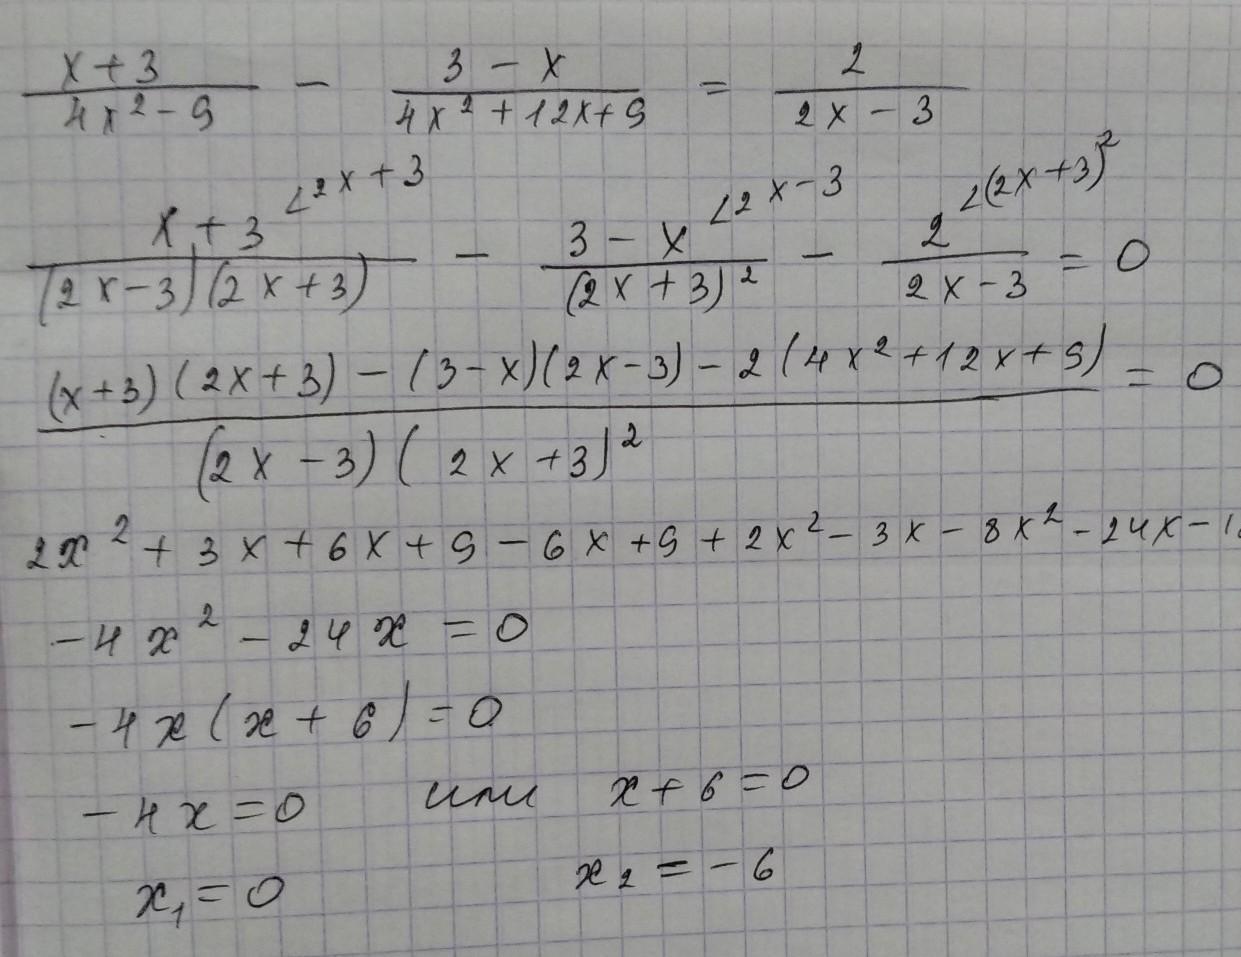 (x + 3)/(4x² - 9) - (3 - x)/(4x² + 12x + 9) = 2/(2x - 3)
(x + 3)^{<2x + 3}/((2x - 3)(2x + 3)) - (3 - x)^{<2x - 3}/(2x + 3)² - 2^{<(2x + 3)²}/(2x - 3) = 0
((x + 3)(2x + 3) - (3 - x)(2x - 3) - 2(4x² + 12x + 9))/((2x - 3)(2x + 3)²) = 0
2x² + 3x + 6x + 9 - 6x + 9 + 2x² - 3x - 8x² - 24x - 1
-4x² - 24x = 0
-4x(x + 6) = 0
-4x = 0 или x + 6 = 0
x₁ = 0 x₂ = -6